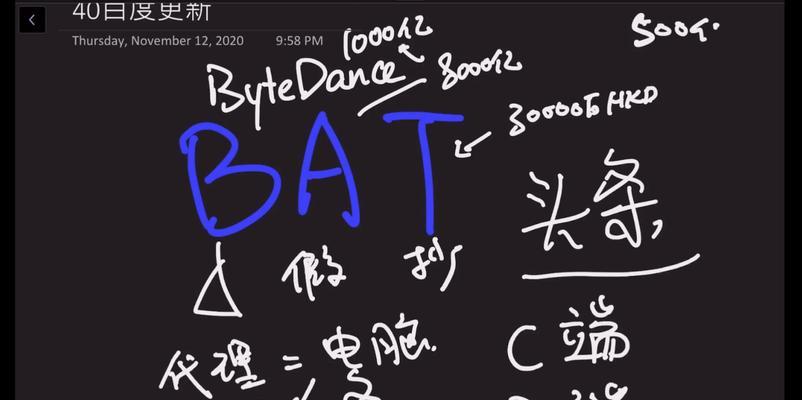 40百度更新
Thursday, November 12, 2020 9:58 PM
1000亿 500亿
ByteDance 8000亿
BAT 30000亿 HKD
头条,
假 抄
代理 = 电脑 C 端